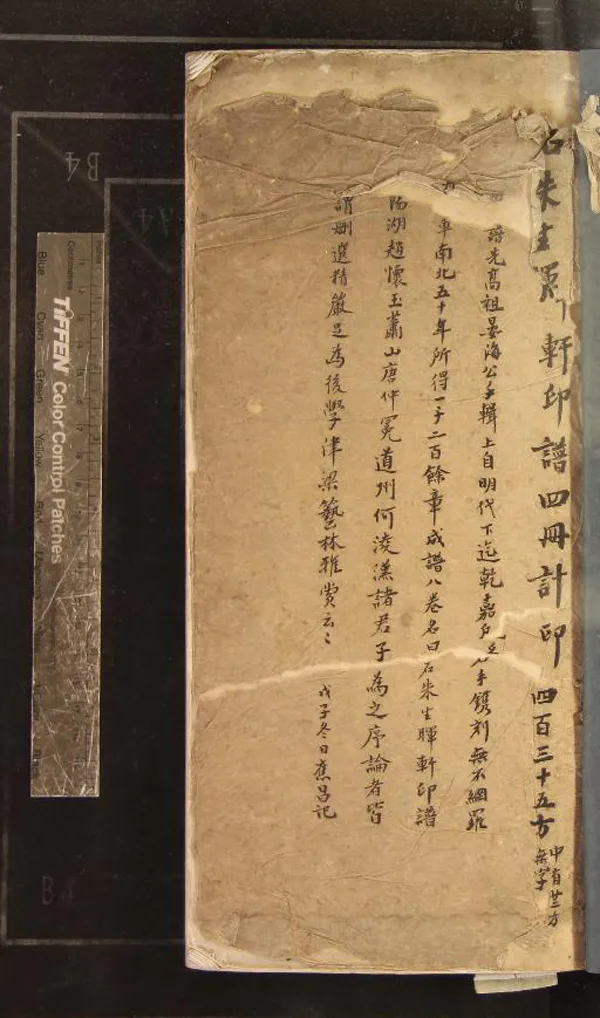 石朱生暉軒印譜四冊計印四百三十五方
中有廿二方
無字
譜先高祖晏海公手輯上自明代下迄乾嘉名手鐫刻無不網羅
車南北五十年所得一千二百餘章成譜八卷名曰石朱生暉軒印譜
陽湖趙懷玉蕭山唐仲冕道州何淩漢諸君子為之序論者皆
謂刪選精嚴足為後學津梁藝林雅賞云云 戊子冬日應昌記
B4
A4
B4
TIFFEN Color Control Patches
Centimetres
Blue
Cyan
Green
Yellow
Red